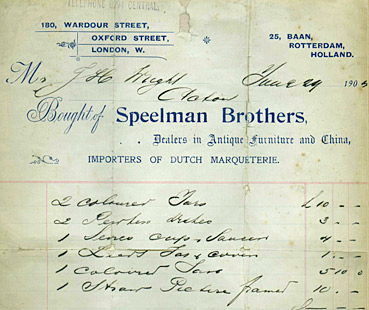 TELEPHONE 6241 CENTRAL.
180, WARDOUR STREET,
OXFORD STREET,
LONDON, W.
25, BAAN,
ROTTERDAM,
HOLLAND.
Mr J H Wright June 29 190
Bought of Speelman Brothers,
Dealers in Antique Furniture and China,
IMPORTERS OF DUTCH MARQUETERIE.
2 Coloured Jars £10 - -
2 dishes 3 - -
1 Sevres cup & Saucer 4 - -
1 Leeds Jar & cover 1 - -
1 coloured Jar 5 10 0
1 Straw Picture framed 10 - -